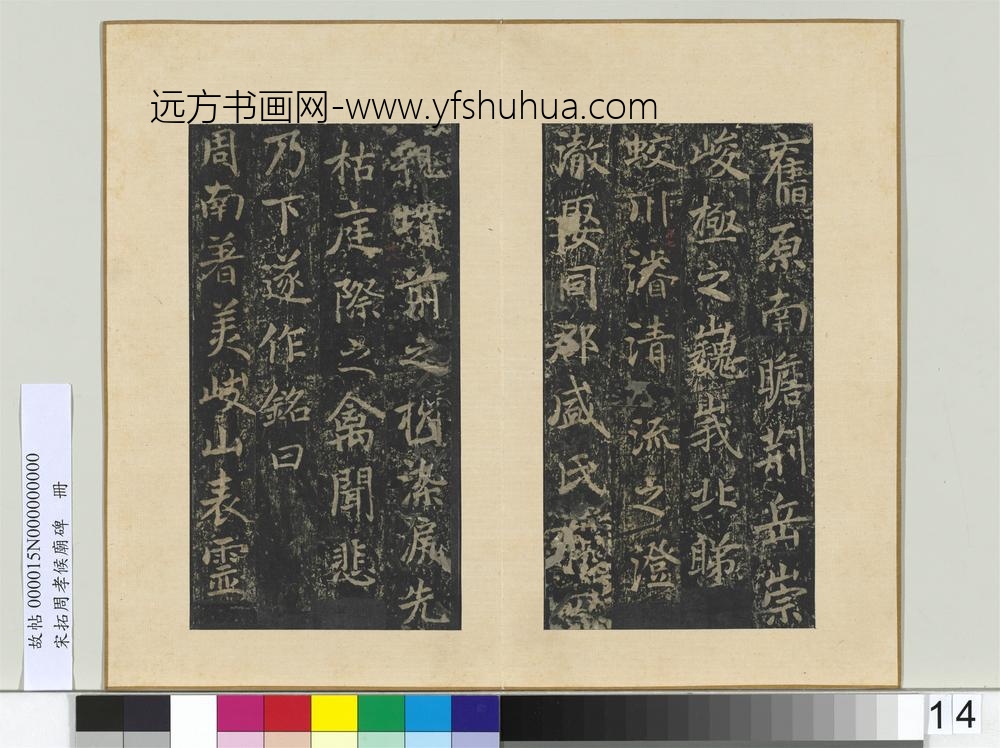 远方书画网-www.yfshuhua.com
舊原南瞻荊岳崇
峻極之巍峩北睇
蛟川濬清流之澄
澈娶同郡盛氏
墳前之樹染庭先
枯庭際之禽聞悲
乃下遂作銘曰
周南著美岐山表靈
故帖 000015N000000000
宋拓周孝候廟碑 冊
14